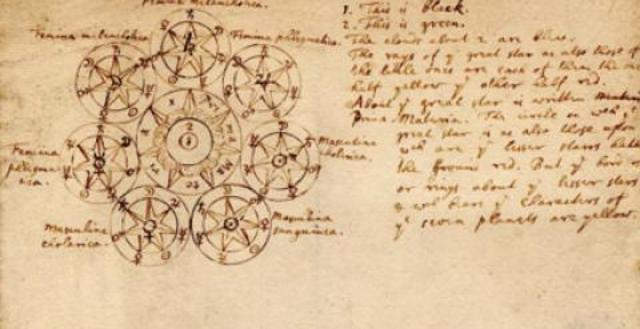 Femina melancholica.
Femina melancholica
Femina phlegmatica.
Femina
phlegma-
tica.
Masculina
cholerica.
Masculina
cholarica.
Masculina
sanguinica.
1. This is black.
2. This is green.
The clouds about 2 are blue.
The rays of yͤ great star as also those of
the little ones are each of them the one
half yellow yͤ other half red.
About yͤ great star is written
Prima Materia. The circle on wch yͤ
great star is as also those upon
wch are yͤ lesser stars hath
the ground red. But yͤ
or rings about yͤ lesser stars
wch bears yͤ Characters of
yͤ seven planets are yellow